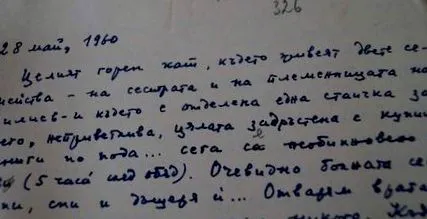 326
28 май, 1960
Целият горен кат, където живеят двете се-
мейства - на сестрата и на племенницата на
и където е отделена една стаичка за
нето, неприветлива, цялата задръстена с купища
книги по пода... сега е необикновено
(5 часа след обяд). Очевидно болната се
спи и дъщеря ѝ... Отварям врата